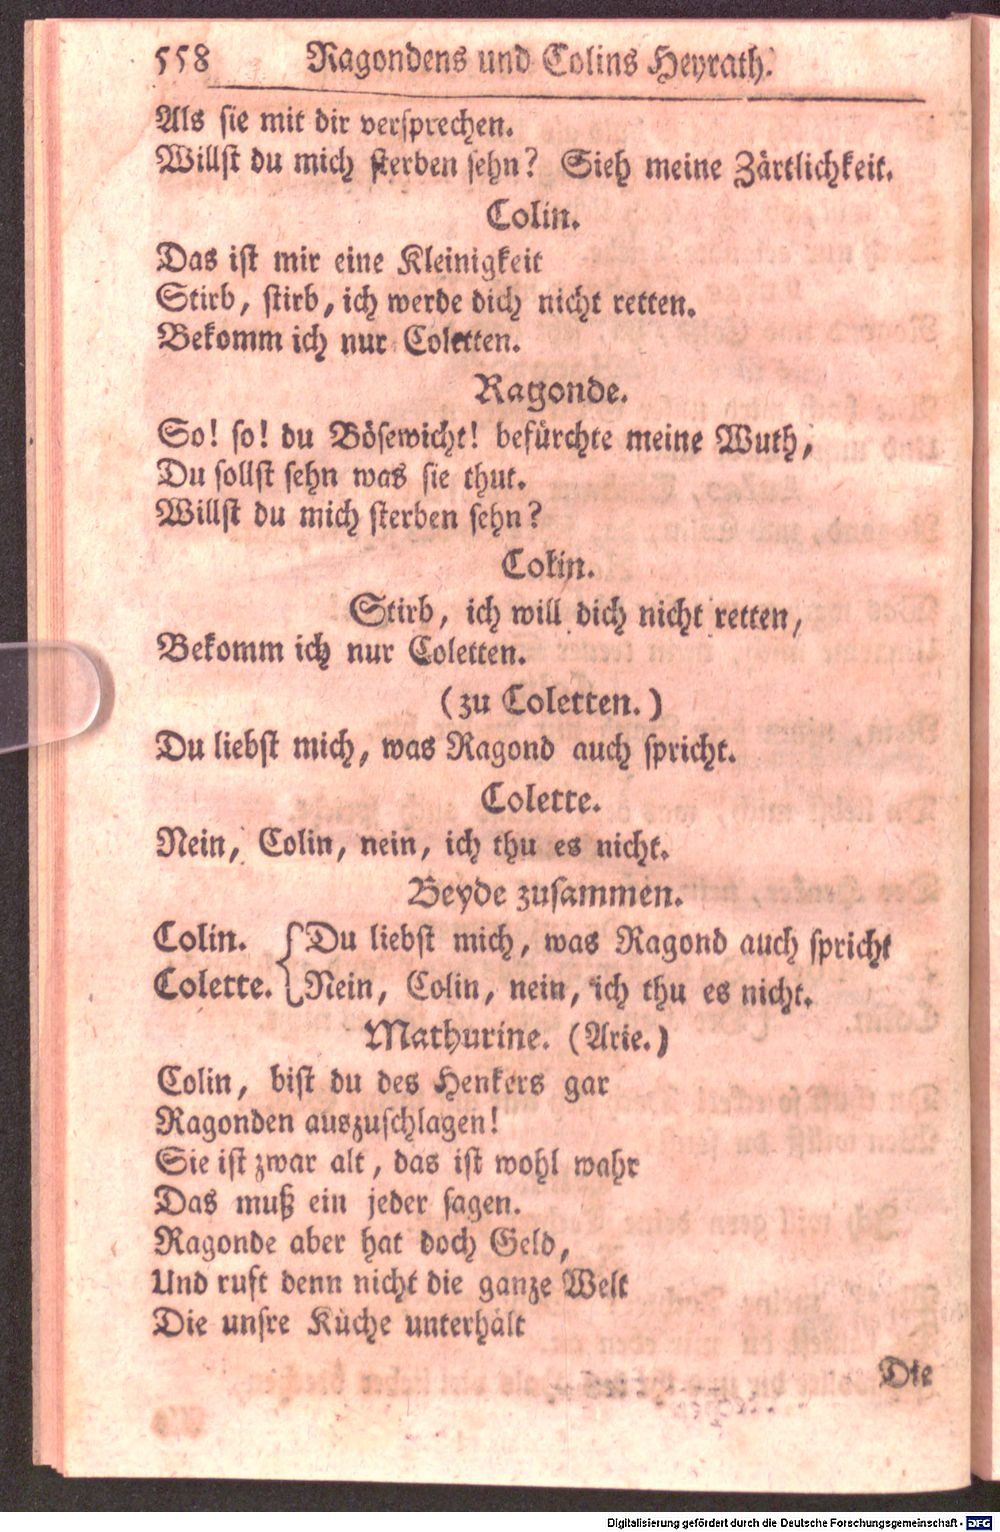 558 Ragondens und Colins Heyrath.
Als sie mit dir versprechen.
Willst du mich sterben sehn? Sieh meine Zärtlichkeit.
Colin.
Das ist mir eine Kleinigkeit
Stirb, stirb, ich werde dich nicht retten.
Bekomm ich nur Coletten.
Ragonde.
So! so! du Bösewicht! befürchte meine Wuth,
Du sollst sehn was sie thut.
Willst du mich sterben sehn?
Colin.
Stirb, ich will dich nicht retten,
Bekomm ich nur Coletten.
(zu Coletten.)
Du liebst mich, was Ragond auch spricht.
Colette.
Nein, Colin, nein, ich thu es nicht.
Beyde zusammen.
Colin. { Du liebst mich, was Ragond auch spricht
Colette. { Nein, Colin, nein, ich thu es nicht.
Mathurine. (Arie.)
Colin, bist du des Henkers gar
Ragonden auszuschlagen!
Sie ist zwar alt, das ist wohl wahr
Das muß ein jeder sagen.
Ragonde aber hat doch Geld,
Und ruft denn nicht die ganze Welt
Die unsre Küche unterhält
Die
Digitalisierung gefördert durch die Deutsche Forschungsgemeinschaft - DFG